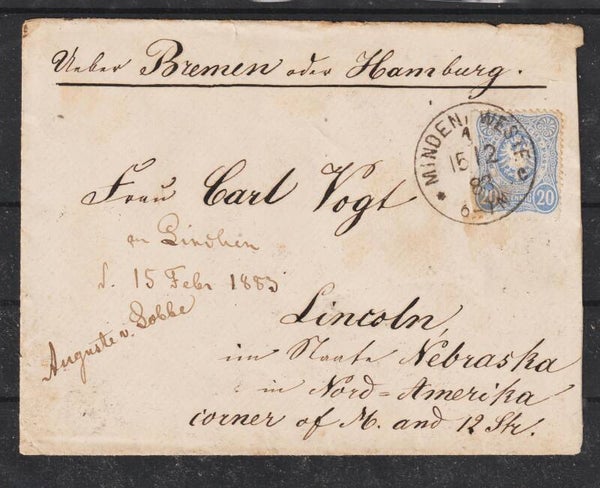 Ueber Bremen oder Hamburg.
MINDEN, WESTF.
15 2
20
Frau Carl Vogt
d. 15 Febr 1883
Auguste v.
Lincoln,
im Staate Nebraska
in Nord=Amerika
corner of M. and 12 Str.